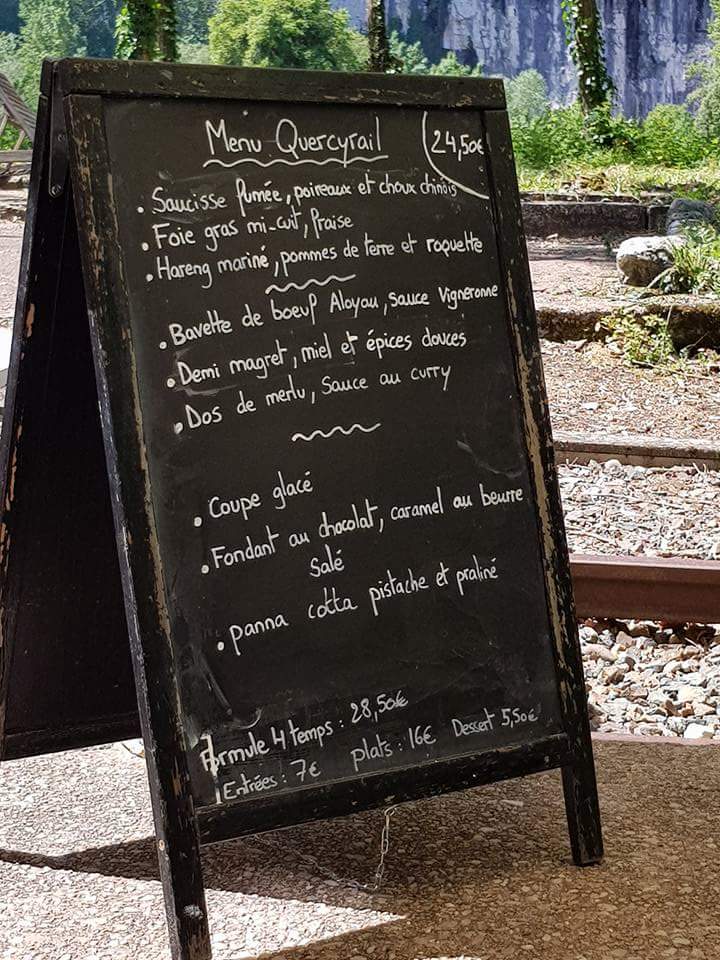 Menu Quercyrail 24,50€
• Saucisse fumée, poireaux et choux chinois
• Foie gras mi-cuit, fraise
• Hareng mariné, pommes de terre et roquette
• Bavette de boeuf Aloyau, sauce Vigneronne
• Demi magret, miel et épices douces
• Dos de merlu, sauce au curry
• Coupe glacé
• Fondant au chocolat, caramel au beurre
salé
• panna cotta pistache et praliné
Formule 4 temps : 28,50€
Entrées : 7€ plats : 16€ Dessert 5,50€